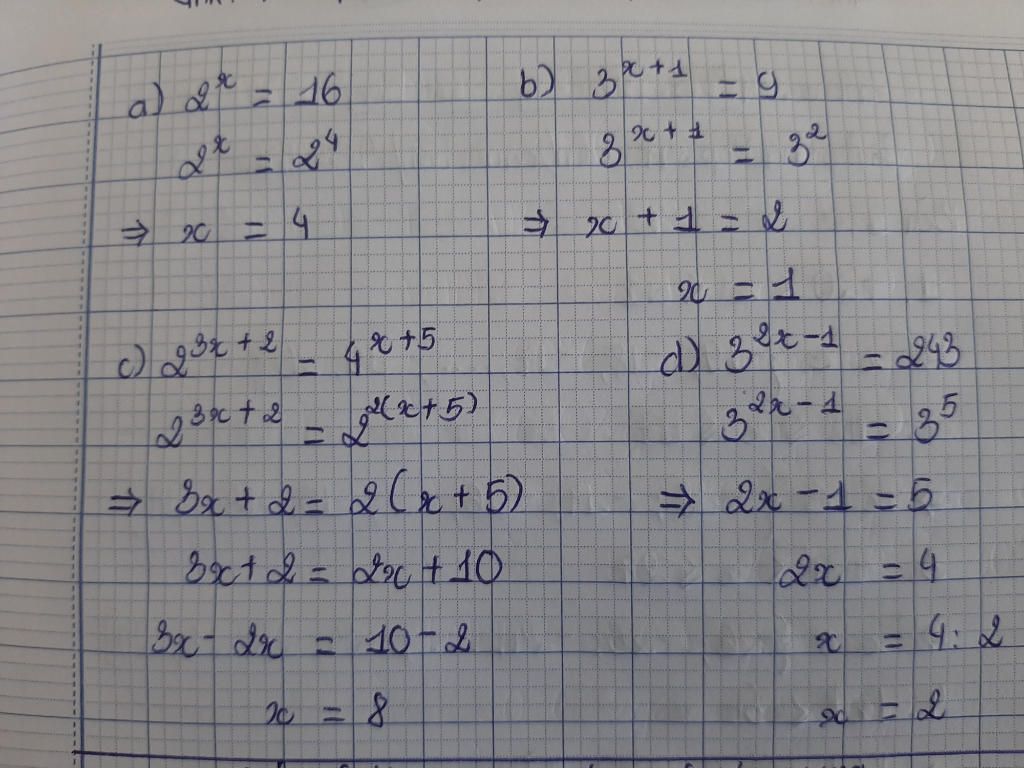 a) 2^x = 16
2^x = 2^4
⇒ x = 4
b) 3^{x+1} = 9
3^{x+1} = 3^2
⇒ x + 1 = 2
x = 1
c) 2^{3x+2} = 4^{x+5}
2^{3x+2} = 2^{2(x+5)}
⇒ 3x + 2 = 2(x + 5)
3x + 2 = 2x + 10
3x - 2x = 10 - 2
x = 8
d) 3^{2x-1} = 243
3^{2x-1} = 3^5
⇒ 2x - 1 = 5
2x = 4
x = 4 : 2
x = 2